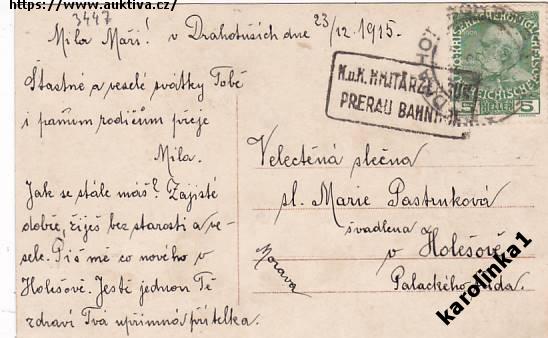 https://www.auktiva.cz/
3447
Milá Maří! v Drahotuších dne 23/12 1915.
Šťastné a veselé svátky Tobě
i paním rodičům přeje
Míla.
Jak se stále máš? Zajisté
dobře, žiješ bez starosti a ve-
sele. Piš mě co nového v
Holešově. Ještě jednou Tě
zdraví Tvá upřímná přítelka.
K.u.K. MILITÄRZENSUR
PRERAU BAHNHOF
5 HELLER 5
Velectěná slečna
sl. Marie Pastrnková
švadlena
v Holešově
Palackého třída.
Morava
karolinka1